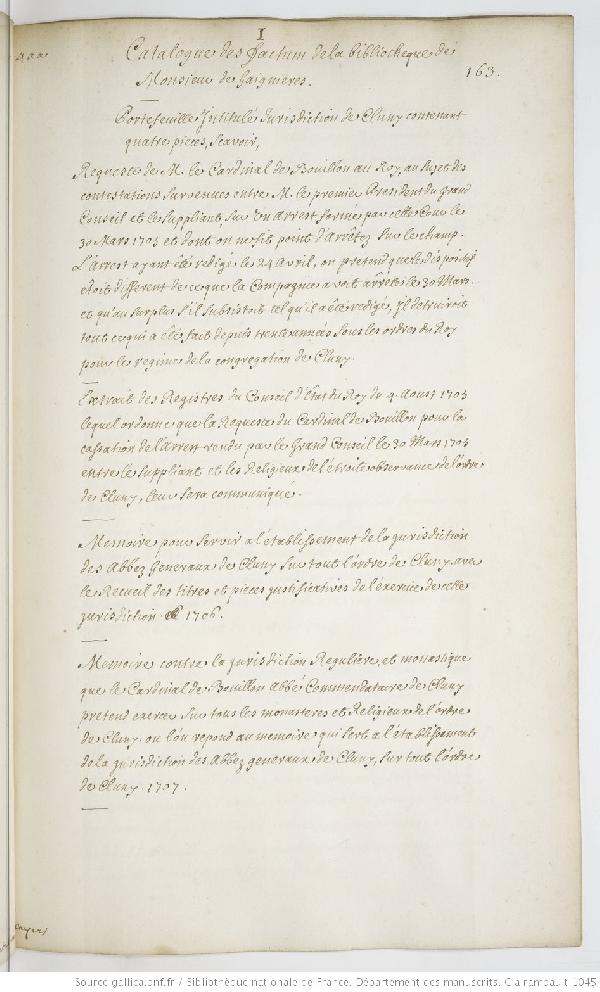 I
Catalogue des factum de la bibliotheque de
Monsieur de Gaignieres.
163.
Portefeuille Intitulé Jurisdiction de Cluny contenant
quatre pieces, scavoir,
Requeste de M. le Cardinal de Bouillon au Roy, au sujet des
contestations survenues entre M. le premier President du grand
Conseil et le suppliant, sur un arrest formé par cette Cour le
30 Mars 1705 et dont on ne fit point d'arrêtez sur le champ.
L'arrest ayant été redigé le 24 avril, on pretend que le dispositif
étoit different de ce que la Compagnie avoit arrêté le 30 Mars.
et qu'au surplus s'il subsistoit tel qu'il a été redigé, Il detruiroit
tout ce qui a été fait depuis trente années sous les ordres du Roy
pour le regime de la congregation de Cluny.
Extrait des Registres du Conseil d'Etat du Roy du 4. Aoust 1705
lequel ordonne que la Requeste du Cardinal de Bouillon pour la
cassation de l'arrest rendu par le Grand Conseil le 30 Mars 1705
entre le suppliant et les Religieux de l'étroite observance de l'ordre
de Cluny, leur sera communiqué.
Memoire pour servir a l'établissement de la jurisdiction
des Abbez Generaux de Cluny sur tout l'ordre de Cluny avec
le Recueil des titres et pieces justificatives de l'exercice de cette
jurisdiction 1706.
Memoire contre la jurisdiction Reguliere, et monastique
que le Cardinal de Bouillon Abbé Commendataire de Cluny
pretend exercer sur tous les monasteres et Religieux de l'ordre
de Cluny. ou l'on repond au memoire qui sert a l'établissement
de la jurisdiction des Abbez generaux de Cluny, sur tout l'ordre
de Cluny. 1707.
Source gallica.bnf.fr / Bibliothèque nationale de France. Département des manuscrits. Clairambault 1045